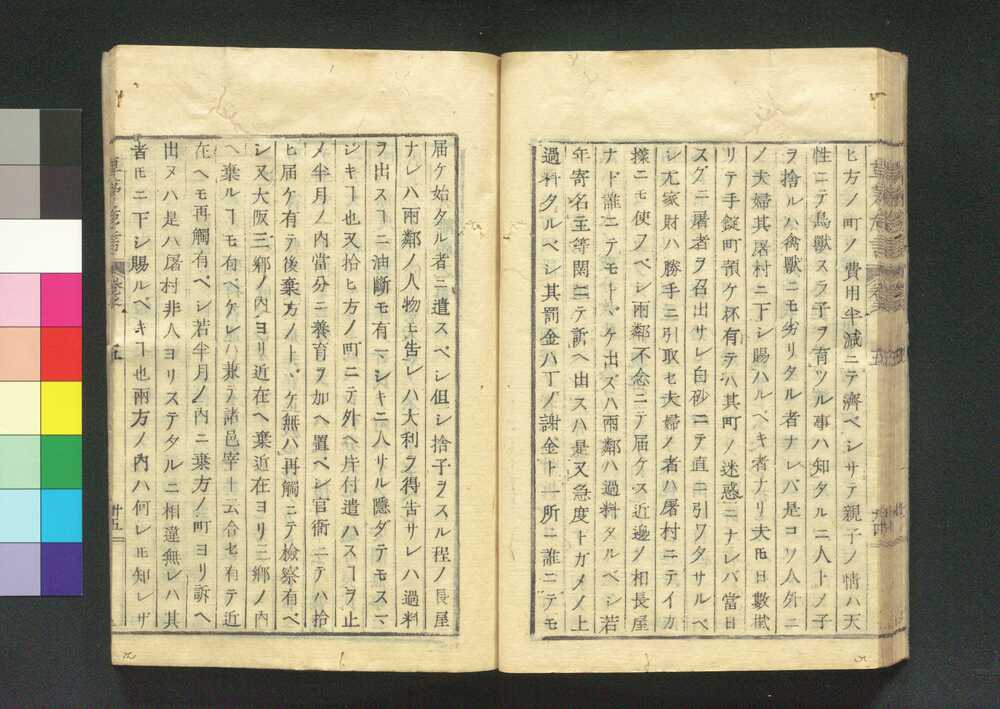 ヒ方ノ町ノ費用半減ニテ濟ベシサテ親子ノ情ハ天
性ニテ鳥獸スラ子ヲ育ツル事ハ知タルニ人トノ子
ヲ捨ルハ禽獸ニモ劣リタル者ナレバ是コソ人外ニ
ノ夫婦其屠村ニ下シ賜ハルベキ者ナリ夫ㇳモ日數撼
リテ手錠町預ケ杯有テハ其町ノ迷惑ニナレバ當日
スグニ屠者ヲ召出サレ白砂ニテ直ニ引ワタサルベ
シ尤家財ハ勝手ニ引取セ夫婦ノ者ハ屠村ニテイカ
樣ニモ使フベシ兩鄰不念ニテ届ケス近邊ノ相長屋
ナド誰ニテモトヾケ出ズハ兩鄰ハ過料タルベシ若
年寄名主等閑ニテ訴ヘ出スハ是又急度トガメノ上
過料タルベシ其罰金ハ丁ノ謝金ト一所ニ誰ニテモ
届ケ始タル者ニ遣スベシ但シ捨子ヲスル程ノ長屋
ナレハ兩鄰ノ人物モ告レハ大利ヲ得告サレハ過料
ヲ出スヿニ油斷モ有マシキニ人サル隱ダテモスマ
ジキヿ也又拾ヒ方ノ町ニテ外ヘ片付遣ハスヿヲ止
メ半月ノ内當分ニ養育ヲ加ヘ置ベシ官衙ニテハ拾
ヒ届ケ有テ後棄方ノトヾケ無ハ再觸ニテ檢察有ベ
シ又大阪三郷ノ内ヨリ近在ヘ棄近在ヨリ三郷ノ内
ヘ棄ルヿモ有ベケレハ兼テ諸邑宰ト云合セ有テ近
在ヘモ再觸有ベシ若半月ノ内ニ棄方ノ町ヨリ訴ヘ
出ヌハ是ハ屠村非人ヨリステタルニ相違無レハ其
者モニ下シ賜ルベキヿ也兩方ノ内ハ何レㇳモ知レザ
廿五